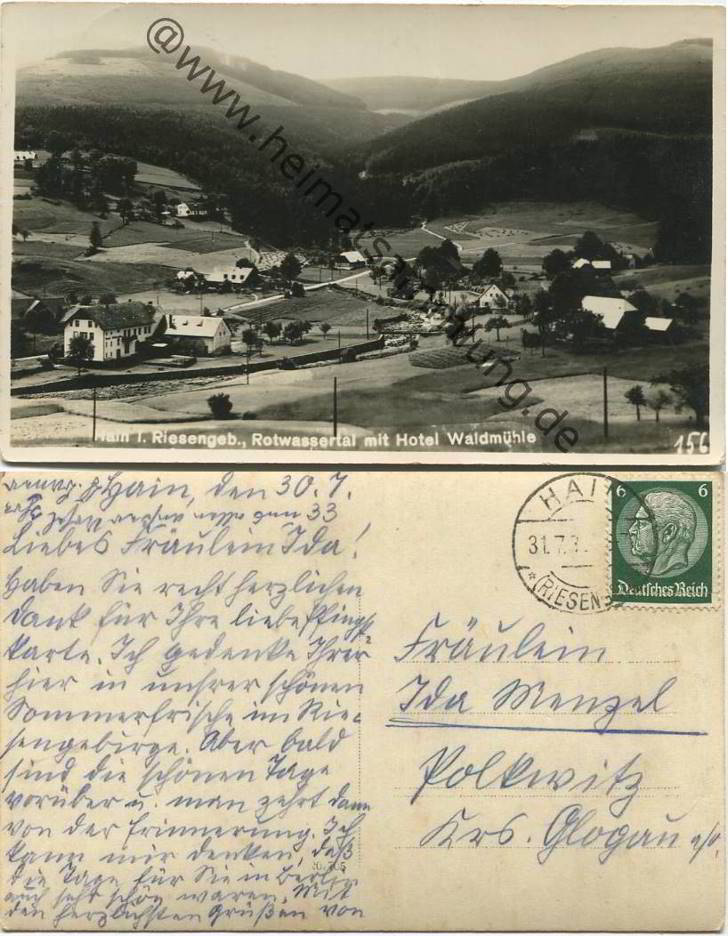 @www.heimatsammlung.de
Hain i. Riesengeb., Rotwassertal mit Hotel Waldmühle
156
Hain, den 30.7.
33
Liebes Fräulein Ida!
Haben Sie recht herzlichen
Dank für Ihre liebe Pfingst-
karte. Ich gedenke Ihrer
hier in unsrer schönen
Sommerfrische im Rie-
sengebirge. Aber bald
sind die schönen Tage
vorüber u. man zehrt dann
von der Erinnerung. Ich
kann mir denken, daß
die Tage für Sie in Berlin
auch sehr schön waren. Mit
den herzlichsten Grüßen von
HAIN
31.7.3
(RIESENG
6 6
Deutsches Reich
Fräulein
Ida Menzel
Polkwitz
Krs. Glogau a/O.